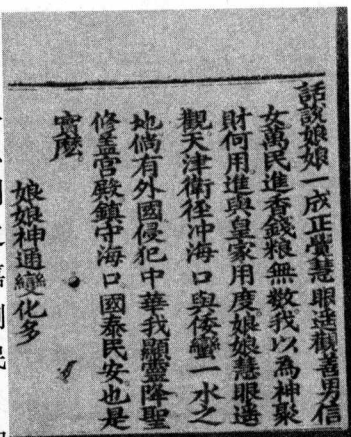 話說娘娘一成正覺慧眼遥觀善男信
女萬民進香錢粮無數我以為神聚
財何用進與皇家用度娘娘慧眼遥
觀天津衛徑冲海口與倭蠻一水之
地倘有外國侵犯中華我顯靈降聖
修盖宫殿鎮守海口國泰民安也是
實麽
娘娘神通變化多